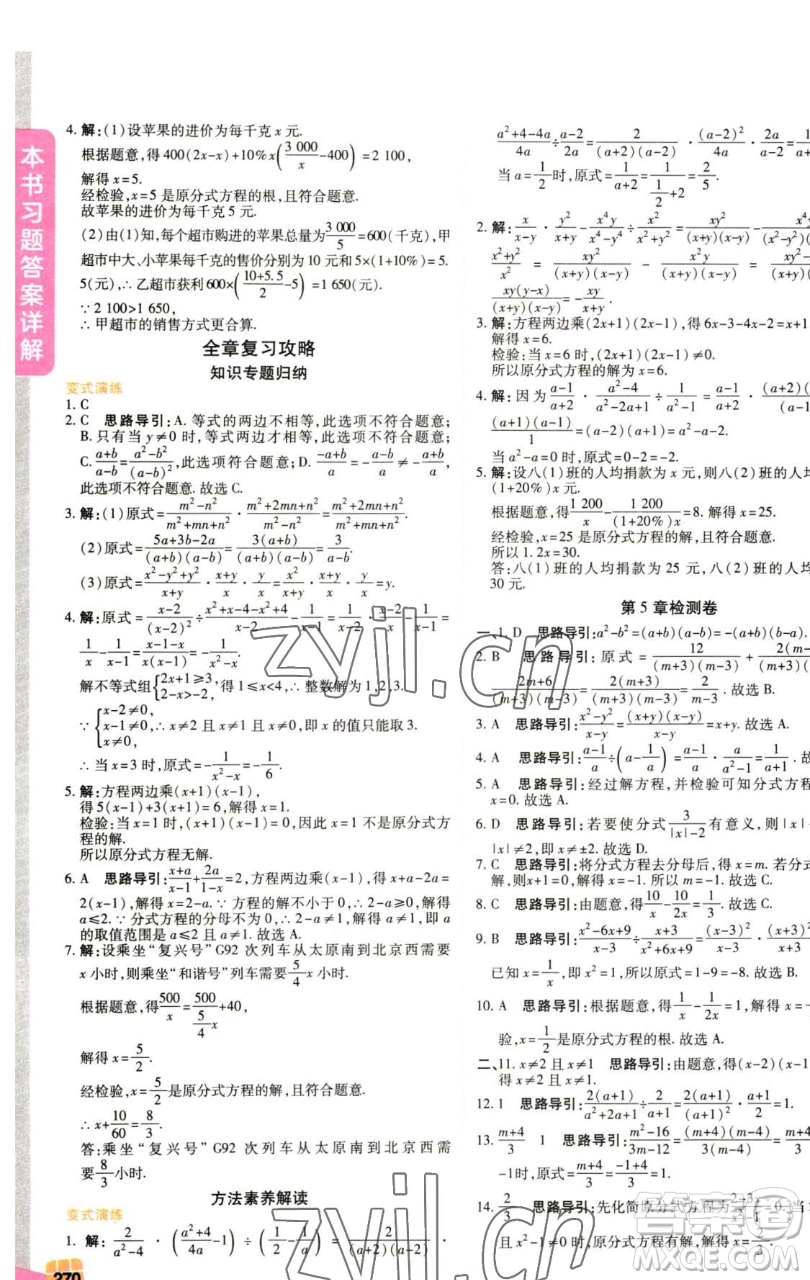 本书习题答案详解
4. 解:(1)设苹果的进价为每千克 x 元.
根据题意,得 400(2x-x)+10%x(3 000/x-400)=2 100,
解得 x=5.
经检验,x=5 是原分式方程的根,且符合题意.
故苹果的进价为每千克 5 元.
(2)由(1)知,每个超市购进的苹果总量为3 000/5=600(千克),甲
超市中大、小苹果每千克的售价分别为 10 元和 5×(1+10%)=5.
5(元),∴乙超市获利 600×((10+5.5)/2-5)=1 650(元).
∵2 100>1 650,
∴甲超市的销售方式更合算.
全章复习攻略
知识专题归纳
变式演练
1. C
2. C 思路导引:A. 等式的两边不相等,此选项不符合题意;
B. 只有当 y≠0 时,等式两边才相等,此选项不符合题意;
C. (a+b)/(a-b)=(a²-b²)/(a-b)²,此选项符合题意;D. (-a+b)/a=-(a-b)/a≠-(a+b)/a,
此选项不符合题意.故选 C.
3. 解:(1)原式=(m²-n²)/(m²+mn+n²)·(m²+2mn+n²)/(m²-n²)=(m²+2mn+n²)/(m²+mn+n²).
(2)原式=(5a+3b-2a)/((a+b)(a-b))=3(a+b)/((a+b)(a-b))=3/(a-b).
(3)原式=(x²-y²+y²)/(x+y)·(x+y)/x=x²/(x+y)·(x+y)/x=x.
4. 解:原式=(x-2)/(x-2)²÷
1/x-1/(x-1)=(x-1-x)/(x(x-1))=-1/(x²-x).
解不等式组{2x+1≥3, 2-x>-2,得 1≤x<4,∴整数解为 1,2,3.
∵{x-2≠0, x-1≠0, x≠0,∴x≠2 且 x≠1 且 x≠0,即 x 的值只能取 3.
∴当 x=3 时,原式=-1/(x²-x)=-1/6.
5. 解:方程两边乘(x+1)(x-1),
得 5(x-1)+3(x+1)=6,解得 x=1.
检验:当 x=1 时,(x+1)(x-1)=0,因此 x=1 不是原分式方
程的解.
所以原分式方程无解.
6. A 思路导引:(x+a)/(x-1)+2a/(1-x)=2,方程两边乘(x-1),得 x+a-2a=
2(x-1),解得 x=2-a.∵方程的解不小于 0,∴2-a≥0,解得
a≤2.∵分式方程的分母不为 0,∴2-a≠1.解得 a≠1,即 a
的取值范围是 a≤2 且 a≠1.故选 A.
7. 解:设乘坐“复兴号”G92 次列车从太原南到北京西需要
x 小时,则乘坐“和谐号”列车需要5/4x 小时.
根据题意,得500/x=500/(5/4x)+40,
解得 x=5/2.
经检验,x=5/2是原分式方程的解,且符合题意.
∴x+10/60=8/3.
答:乘坐“复兴号”G92 次列车从太原南到北京西需
要8/3小时.
方法素养解读
变式演练
1. 解:2/(a²-4)·((a²+4)/4a-1)÷(1/2-1/a)=2/((a+2)(a-2))·
270
(a²+4-4a)/4a÷(a-2)/2a=2/((a+2)(a-2))·(a-2)²/4a·2a/(a-2)
当 a=1/2时,原式=1/(a+2)=1/(1/2+2)=2/5.
2. 解:x/(x-y)·y²/(x+y)-x⁴y/(x⁴-y⁴)÷x²/(x²+y²)=xy²/((x+y)(x-y))-
(x²+y²)/x²=xy²/((x+y)(x-y))-x²y/((x+y)(x-y))=
xy(y-x)/((x+y)(x-y))=-xy/(x+y).
3. 解:方程两边乘(2x+1)(2x-1),得 6x-3-4x-2=
解得 x=6.
检验:当 x=6 时,(2x+1)(2x-1)≠0,
所以原分式方程的解为 x=6.
4. 解:因为(a-1)/(a+2)·(a²-4)/(a²-2a+1)÷1/(a²-1)=(a-1)/(a+2)·
(a+1)(a-1)/1
当 a²-a=0 时,原式=0-2=-2.
5. 解:设八(1)班的人均捐款为 x 元,则八(2)班的人均捐款为
(1+20%)x 元.
根据题意,得1 200/x-1 200/((1+20%)x)=8.解得 x=25.
经检验,x=25 是原分式方程的解,且符合题意.
所以 1.2x=30.
答:八(1)班的人均捐款为 25 元,八(2)班的人均捐款为
30 元.
第 5 章检测卷
一、1. D 思路导引:a²-b²=(a+b)(a-b)=-(a+b)(b-a).
2. B 思路导引:原式=12/((m+3)(m-3))+
(2m+6)/((m+3)(m-3))=2(m+3)/((m+3)(m-3))=2/(m-3).故选 B.
3. A 思路导引:(x²-y²)/(x-y)=(x+y)(x-y)/(x-y)=x+y.故选 A.
4. A 思路导引:(a-1)/a÷(a-1/a)=(a-1)/a·a/(a²-1)=1/(a+1).
5. A 思路导引:经过解方程,并检验可知分式方程
x=0.故选 A.
6. D 思路导引:若要使分式3/(|x|-2)有意义,则|x|-
|x|≠2,即 x≠±2.故选 D.
7. C 思路导引:将分式方程去分母后,得 x=m.若分式
解,则x+1=0,解得 m=-1.故选 C.
8. C 思路导引:由题意,得10/x-10/2x=1/3.故选 C.
9. B 思路导引:(x²-6x+9)/(x-3)÷(x²+6x+9)/(x+3)=(x-3)²/(x-3)·(x+3)/
已知 x=1,即 x²=1.∴原式=1-9=-8.故选 B.
10. A 思路导引:根据题意,得1/x-1/2x=1,解得 x=
验,x=1/2是原分式方程的根.故选 A.
二、11. x≠2 且 x≠1 思路导引:由题意,得(x-2)(x-1)
得 x≠2 且 x≠1.
12. 1 思路导引:2(a+1)/(a²+2a+1)÷2/(a+1)=2(a+1)/(a+1)²·(a+1)/2
13. (m+4)/3 1 思路导引:(m²-16)/(3m-12)=(m+4)(m-4)/3(m-4)=(m+4)/3.
-1时,原式=(m+4)/3=(-1+4)/3=1.
14. 2/3 思路导引:先化简原分式方程为
且 x²-1≠0 时,原分式方程的解为 x=
zyjl.cn
zyjl.cn
作业精灵